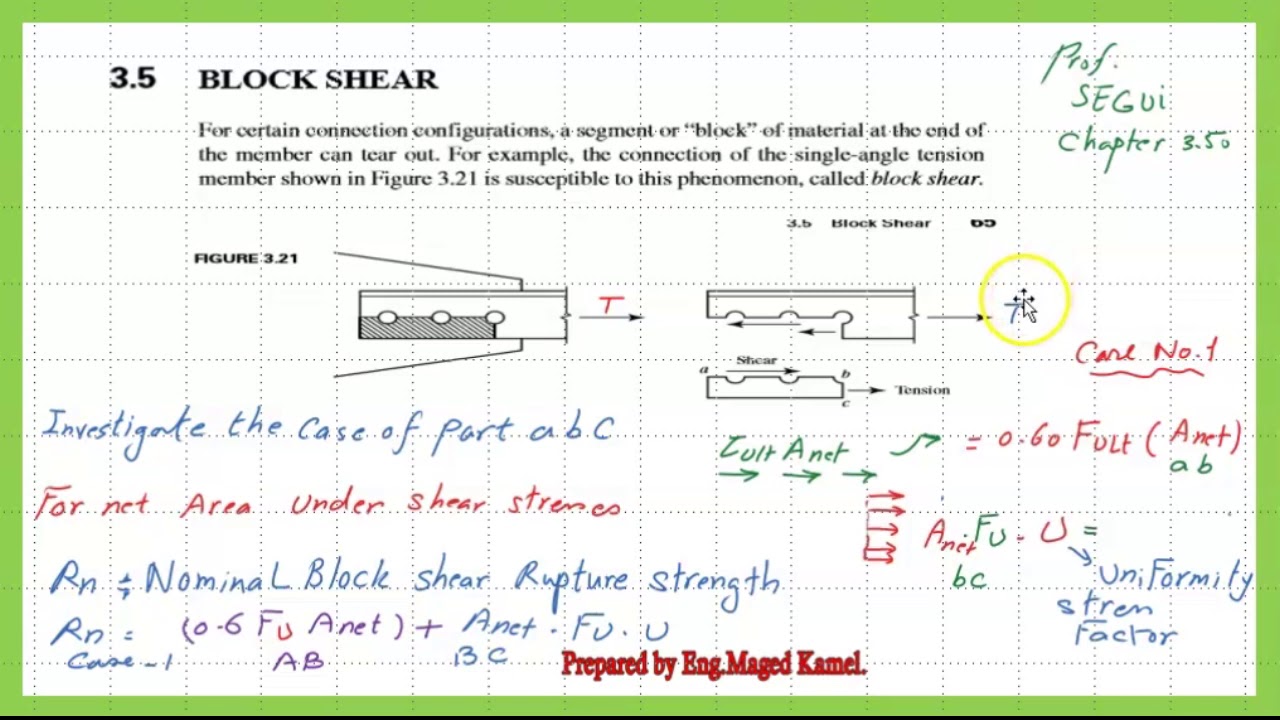 Prof.
SEGUi
Chapter 3.50
3.5 BLOCK SHEAR
For certain connection configurations, a segment or “block” of material at the end of
the member can tear out. For example, the connection of the single-angle tension
member shown in Figure 3.21 is susceptible to this phenomenon, called block shear.
3.5 Block Shear
FIGURE 3.21
T
T
Case No.1
a Shear b
Tension
c
Investigate the Case of part abC
τult Anet = 0.60 FULt (Anet)
ab
For net Area Under shear stresses
Anet FU . U =
bc
UniFormity
stress
Factor
Rn = NominaL Block shear Rupture strength
Rn = (0.6 FU Anet) + Anet . FU . U
Case-1 AB BC
Prepared by Eng.Maged Kamel.